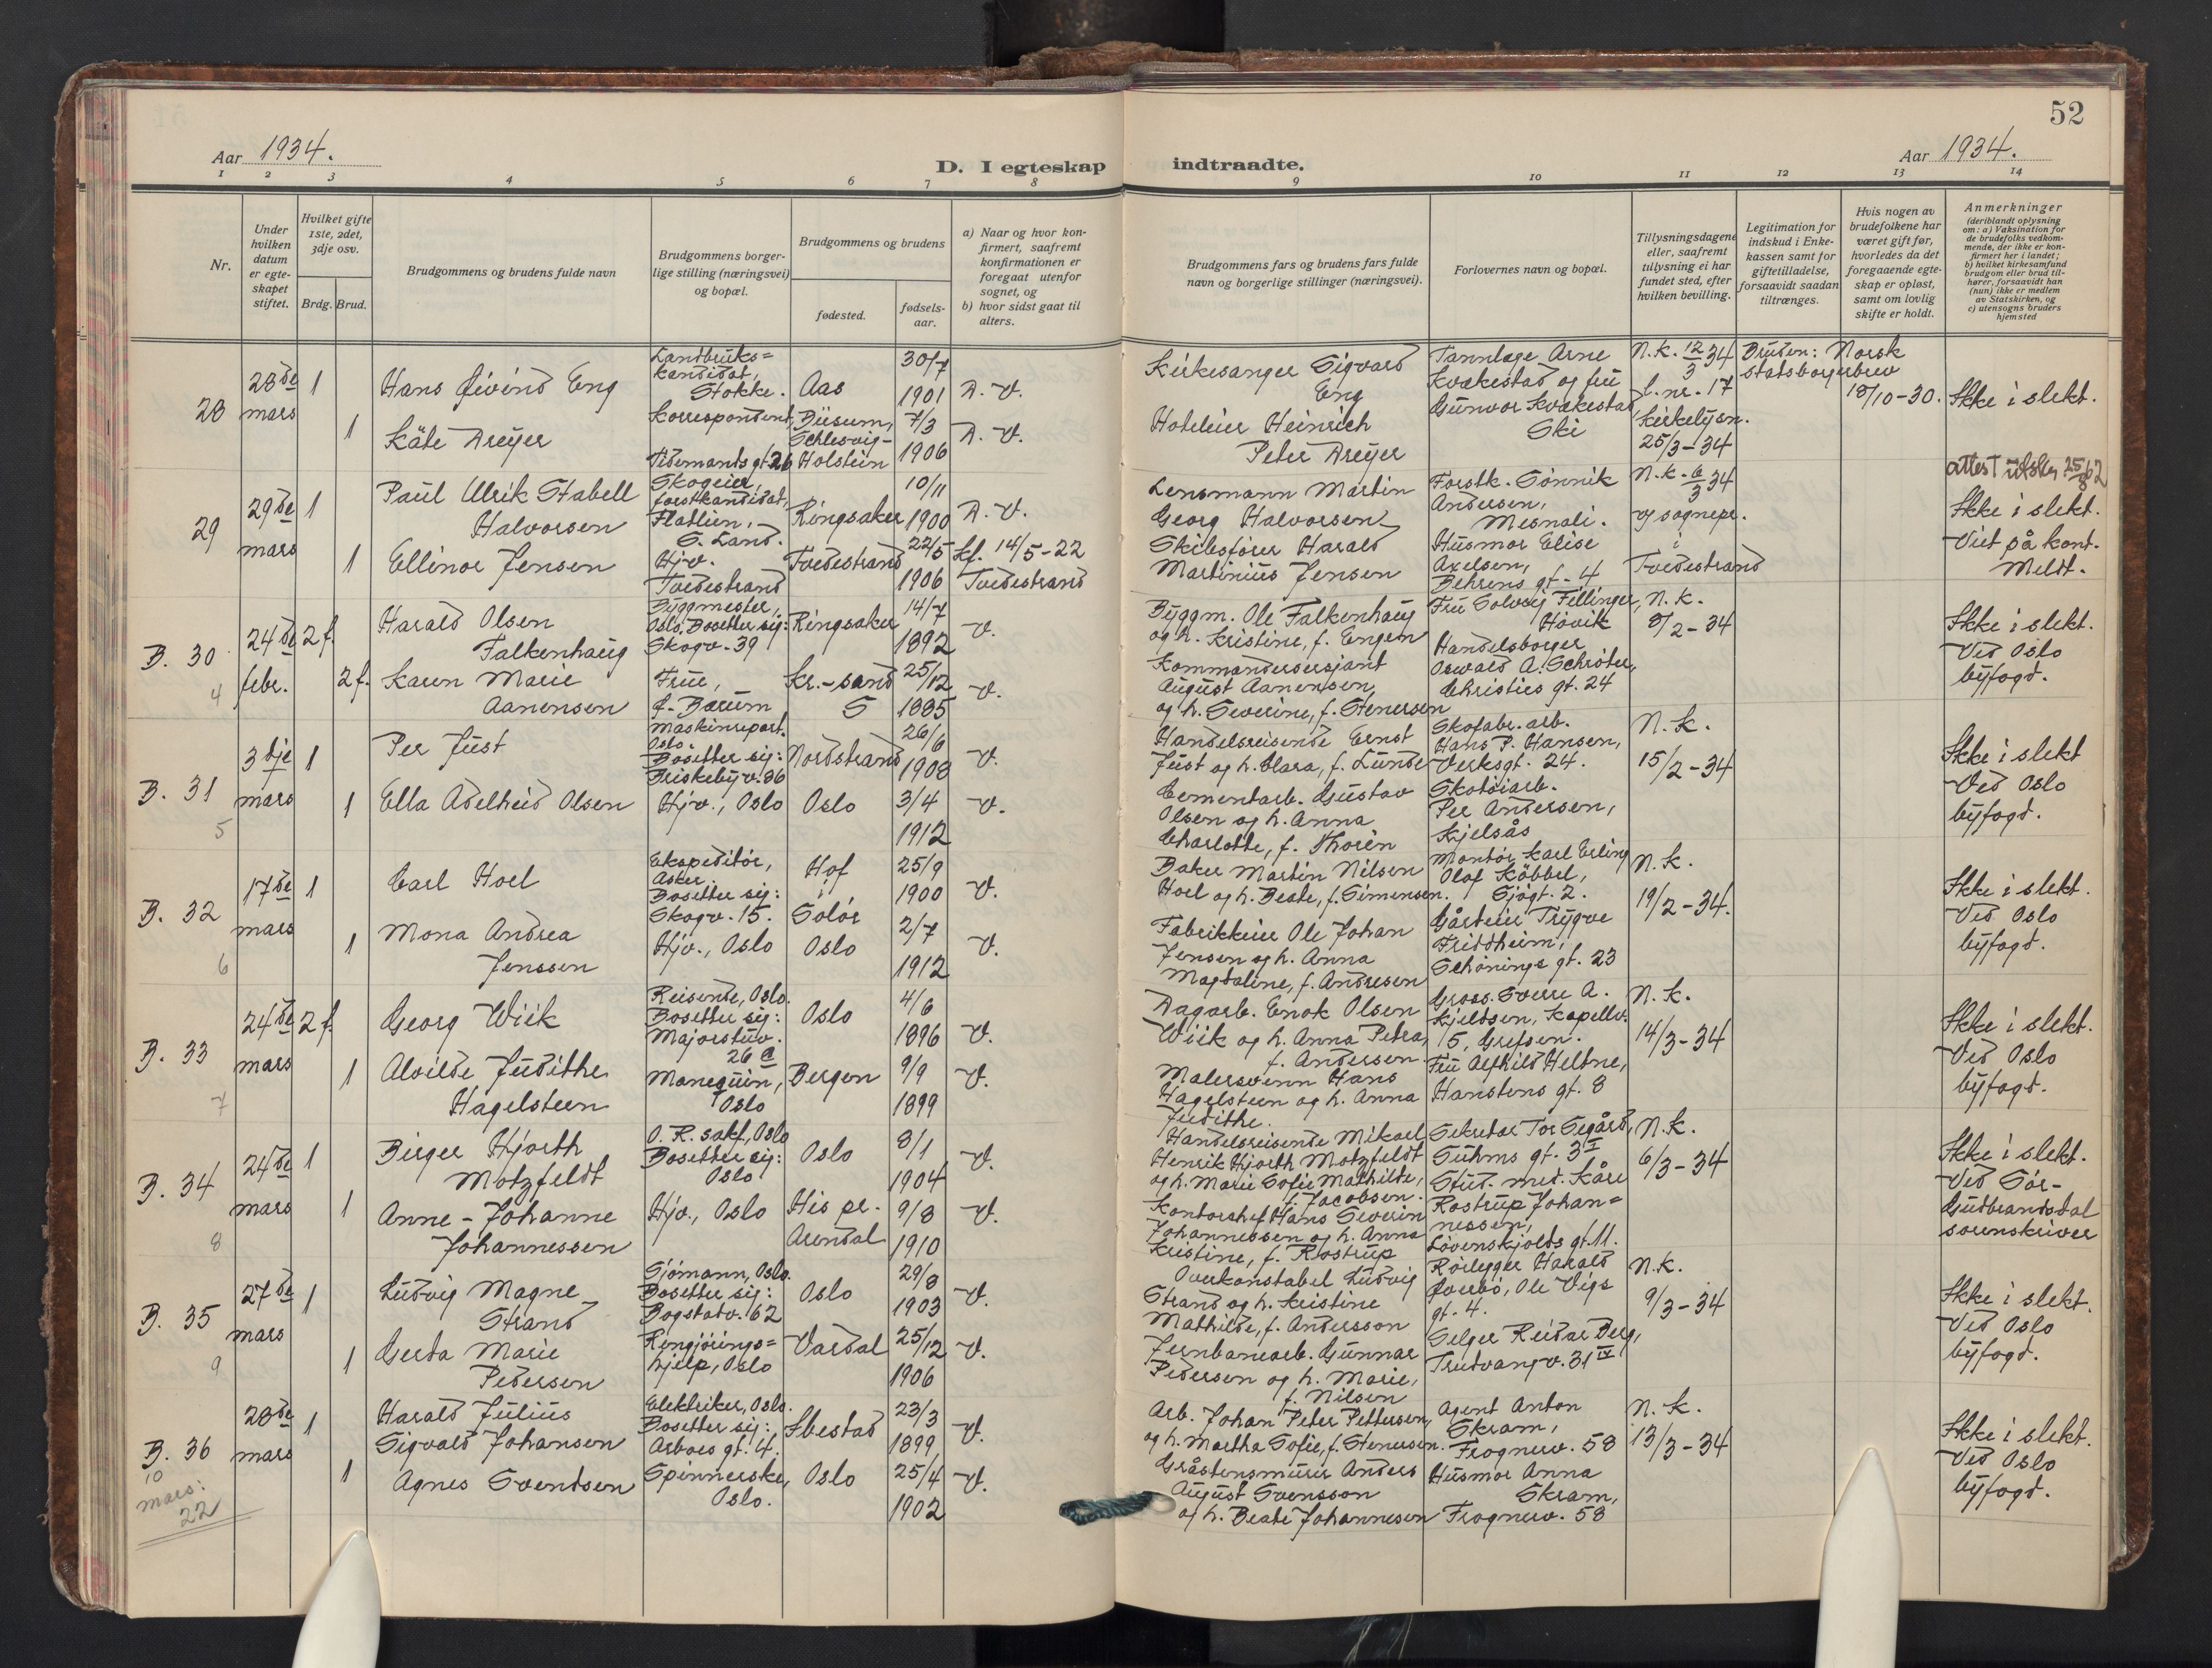 52
Aar 1934.
D. I egteskap
indtraadte.
Aar 1934.
1 2 3 4 5 6 7 8
9 10 11 12 13 14
Nr.
Under
hvilken
datum
er egte-
skapet
stiftet.
Hvilket gifte
1ste, 2det,
3dje osv.
Brdg. Brud.
Brudgommens og brudens fulde navn
Brudgommens borger-
lige stilling (næringsvei)
og bopæl.
Brudgommens og brudens
fødested.
fødsels-
aar.
a) Naar og hvor kon-
firmert, saafremt
konfirmationen er
foregaat utenfor
sognet, og
b) hvor sidst gaat til
alters.
Brudgommens fars og brudens fars fulde
navn og borgerlige stillinger (næringsvei).
Forlovernes navn og bopæl.
Tillysningsdagene
eller, saafremt
tillysning ei har
fundet sted, efter
hvilken bevilling.
Legitimation for
indskud i Enke-
kassen samt for
giftetilladelse,
forsaavidt saadan
tiltrænges.
Hvis nogen av
brudefolkene har
været gift før,
hvorledes da det
foregaaende egte-
skap er opløst,
samt om lovlig
skifte er holdt.
Anmerkninger
(deriblandt oplysning
om: a) Vaksination for
de brudefolks vedkom-
mende, der ikke er kon-
firmert her i landet;
b) hvilket kirkesamfund
brudgom eller brud til-
hører, forsaavidt han
(hun) ikke er medlem
av Statskirken, og
c) utensogns bruders
hjemsted
28
28de
mars
1
1
Hans Øivind Eng
Käte Dreyer
Landbruks=
kandidat,
Stokke.
Korrespondent,
Tidemands gt. 26
Aas
Büsum,
Schlesvig-
Holstein
30/7
1901
7/3
1906
D. V.
D. V.
Kirkesanger Sigvard
Eng
Hoteleier Heinrich
Peter Dreyer
Tannlæge Arne
Kvækestad og fru
Gunvor Kvækestad,
Ski
N. k. 12/3 34
l. nr. 17
Kirkelysn.
25/3-34
Bruden: Norsk
statsborgerbrev
18/10-30.
Ikke i slekt.
29
29de
mars
1
1
Paul Ulrik Stabell
Halvorsen
Ellinor Jensen
Skogeier,
forstkandidat,
Flatlien,
S. Land.
Hjv.
Tvedestrand
Ringsaker
Tvedestrand
10/11
1900
22/5
1906
D. V.
Kf. 14/5-22
Tvedestrand
Lensmann Martin
Georg Halvorsen
Skibsfører Harald
Martinius Jensen
Forstk. Sønnik
Andersen,
Mesnali.
Husmor Elise
Axelsen,
Behrens gt. 4
N. k. 6/3 34
v/ sognepr.
i
Tvedestrand
attest utskr. 25/8 62
Ikke i slekt.
Viet på kont.
Meldt.
B. 30
4
24de
febr.
2 f.
2 f.
Harald Olsen
Falkenhaug
Karen Marie
Aanensen
Byggmester,
Oslo. Bosetter sig:
Skogv. 39
Frue,
f. Bærum
Ringsaker
Kr.-sand
S
14/7
1892
25/12
1885
V.
V.
Byggm. Ole Falkenhaug
og h. Kristine, f. Engen
Kommandersersjant
August Aanensen,
og h. Severine, f. Stenersen
Fru Solveig Fillinger,
Høvik
Handelsborger
Oswald A. Schrøter,
Christies gt. 24
N. k.
8/2-34
Ikke i slekt.
Ved Oslo
byfogd.
B. 31
5
3dje
mars
1
1
Per Just
Ella Adelheid Olsen
Maskinrepart.
Oslo.
Bosetter sig:
Briskebyv. 36
Hjv., Oslo
Nordstrand
Oslo
26/6
1908
3/4
1912
V.
V.
Handelsreisende Ernst
Just og h. Clara, f. Lunde
Cementarb. Gustav
Olsen og h. Anna
Charlotte, f. Thorén
Skofabr. arb.
Hans P. Hansen,
Verksgt. 24.
Skotøiarb.
Per Andersen,
Kjelsås
N. k.
15/2-34
Ikke i slekt
Ved Oslo
byfogd.
B. 32
6
17de
mars
1
1
Carl Hoel
Mona Andrea
Jenssen
Ekspeditør,
Asker.
Bosetter sig:
Skogv. 15.
Hjv., Oslo
Hof
i
Solør
Oslo
25/9
1900
2/7
1912
V.
V.
Baker Martin Nilsen
Hoel og h. Beate, f. Simensen.
Fabrikkeier Ole Johan
Jensen og h. Anna
Magdaline, f. Andresen
Montør Karl Erling
Olaf Købbel,
Sjøgt. 2.
Gårdeier Trygve
Friddheim,
Schønings gt. 23
N. k.
19/2-34.
Ikke i slekt.
Ved Oslo
byfogd.
B. 33
7
24de
mars
2 f.
1
Georg Wiik
Alvilde Judithe
Hagelsteen
Reisende, Oslo.
Bosetter sig:
Majorstuv.
26 a
Manequin,
Oslo
Oslo
Bergen
4/6
1896
9/9
1899
V.
V.
Dagarb. Enok Olsen
Wiik og h. Anna Petra,
f. Andersen.
Malersvenn Hans
Hagelsteen og h. Anna
Judithe.
Gross. Sverre A.
Kjeldsen, Kapellv.
15, Grefsen.
Fru Alfhild Heltne,
Hanstens gt. 8
N. k.
14/3-34
Ikke i slekt.
Ved Oslo
byfogd.
B. 34
8
24de
mars
1
1
Birger Hjorth
Motzfeldt
Anne-Johanne
Johannessen
O. R. sakf., Oslo
Bosetter sig:
Oslo
Hjv., Oslo
Oslo
His pr.
Arendal
8/1
1904
9/8
1910
V.
V.
Handelsreisende Mikael
Henrik Hjorth Motzfeldt
og h. Marie Sofie Mathilde,
f. Jacobsen.
Kontorchef Hans Severin
Johannessen og h. Anna
Kristine, f. Rostrup
Sekretær Tor Segård,
Suhms gt. 3 I
Stud. med. Kåre
Rostrup Johan=
nessen,
Løvenskjolds gt. 11.
N. k.
6/3-34
Ikke i slekt.
Ved Sør-
Gudbrandsdal
sorenskriver
B. 35
9
27de
mars
1
1
Ludvig Magne
Strand
Gerda Marie
Pedersen
Sjømann, Oslo.
Bosetter sig:
Bogstadv. 62
Rengjørings=
hjelp, Oslo
Oslo
Vardal
29/8
1903
25/12
1906
V.
V.
Overkonstabel Ludvig
Strand og h. Kristine
Mathilde, f. Andersson
Jernbanearb. Gunnar
Pedersen og h. Marie,
f. Nilsen
Rørlegger Harald
Øverbø, Ole Vigs
gt. 4.
Selger Reidar Berg,
Trudvangv. 31 IV
N. k.
9/3-34
Ikke i slekt.
Ved Oslo
byfogd.
B. 36
10
mars:
22
28de
mars
1
1
Harald Julius
Sigvald Johansen
Agnes Svendsen
Elektriker, Oslo.
Bosetter sig:
Arboes gt. 4.
Spinnerske,
Oslo.
Ibestad
Oslo
23/3
1899
25/4
1902
V.
V.
Arb. Johan Peter Pettersen,
og h. Martha Sofie, f. Stenersen.
Gråstensmurer Anders
August Svensson
og h. Beate Johannesen
Agent Anton
Skram,
Frognerv. 58
Husmor Anna
Skram,
Frognerv. 58
N. k.
13/3-34
Ikke i slekt.
Ved Oslo
byfogd.